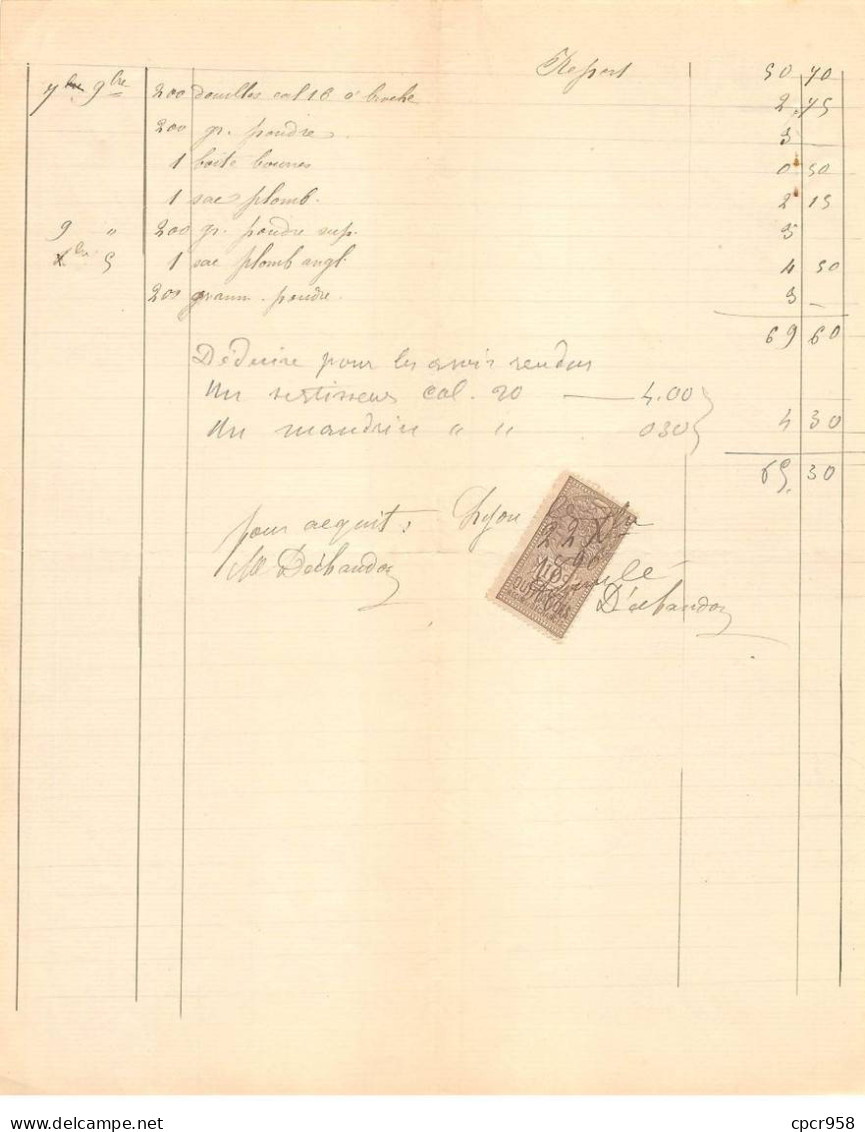 Report 50 70
7 bre 9 bre 200 douilles cal 16 à broche 2 75
200 gr. poudre 3 —
1 boite bourres 0 50
1 sac plomb. 2 15
9 " 200 gr. poudre sup. 3
X bre 5 1 sac plomb angl. 4 50
200 gramm. poudre. 3 —
69 60
Déduire pour les avoir rendus
un sertisseur cal. 20 — 4.00
un mandrin " " 030 4 30
65. 30
pour acquit, Lyon le
22 Xbre
90
M Duibandon